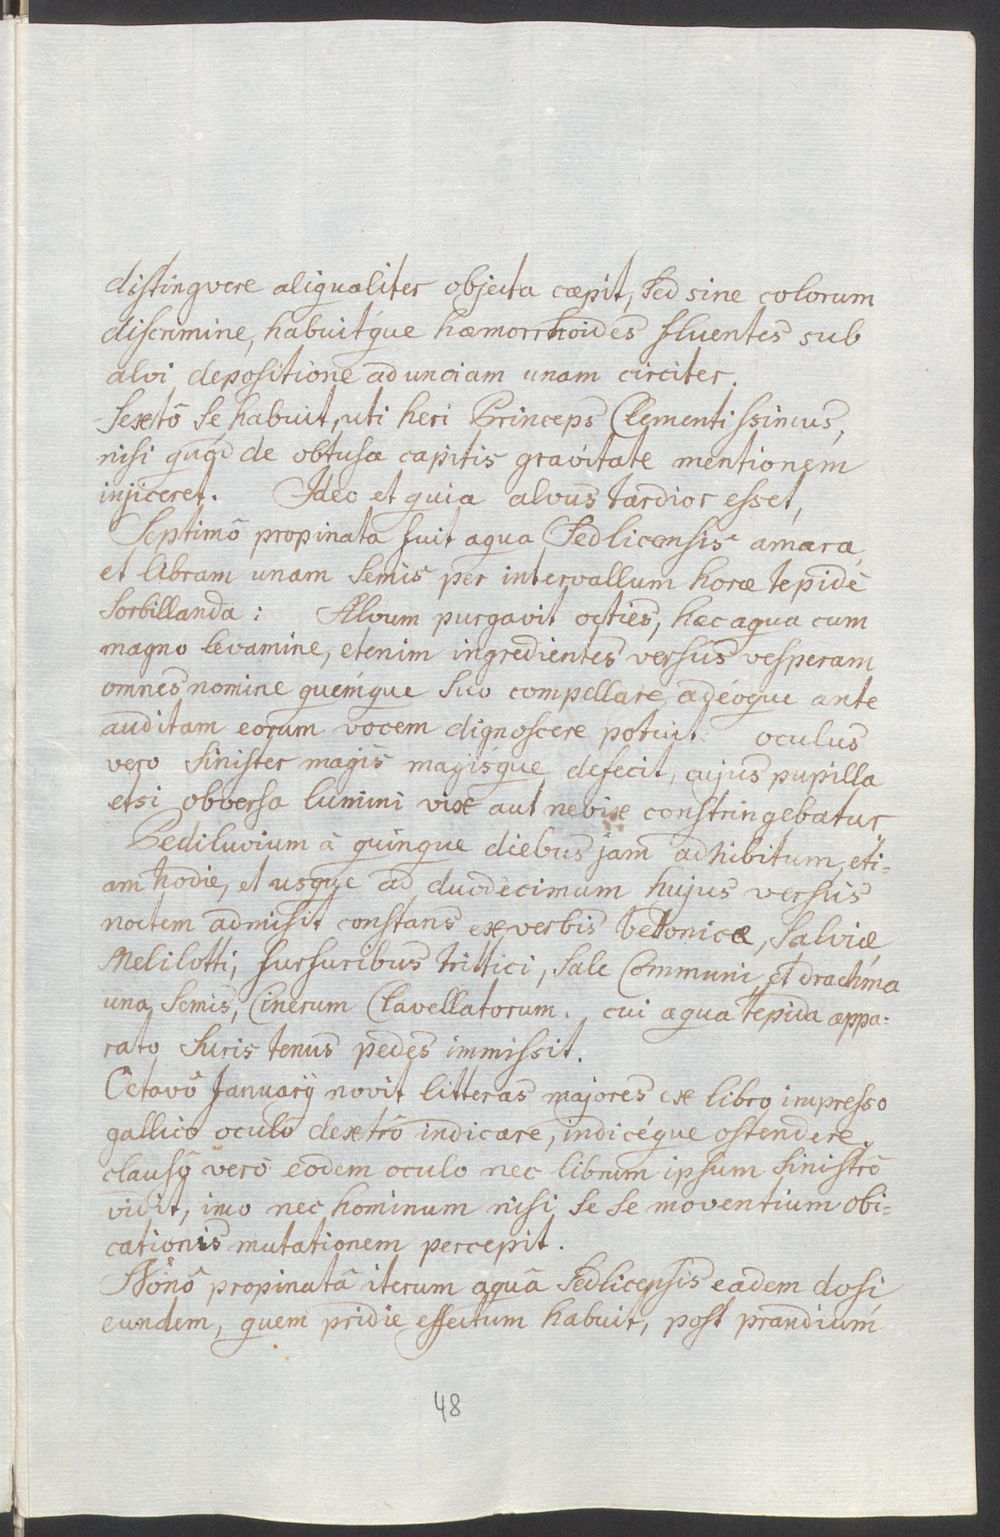 distingvere aliqualiter objecta cæpit, sed sine colorum
discrimine, habuitque hæmorrhoides fluentes sub
alvi depositione ad unciam unam circiter.
Sextô se habuit, uti heri Princeps Clementissimus,
nisi quod de obtusa capitis gravitate mentionem
injiceret. Ideo et quia alvus tardior esset,
Septimô propinata fuit aqua Sedlicensis amara,
et libram unam semis per intervallum horæ tepidè
sorbillanda: Alvum purgavit octies, hæc aqua cum
magno levamine, etenim ingredientes versus vesperam
omnes nomine quemque suo compellare, adeoque ante
auditam eorum vocem dignoscere potuit: oculus
vero sinister magis magisque defecit, cujus pupilla
etsi obversa lumini vix aut nevix constringebatur.
Pediluvium à quinque diebus jam adhibitum, eti=
am hodie, et usque ad duodecimum hujus versus
noctem admisit constans ex verbis betonicæ, Salviæ
Melilotti, furfuribus trittici, Sale Communi, et drachma
una semis, Cinerum Clavellatorum. cui aqua tepida appa=
rato Suris tenus pedes immissit.
Octavô Januarij novit litteras majores ex libro impresso
gallico oculô dextrô indicare, indicéque ostendere.
clausô verò eodem oculo nec librum ipsum sinistrô
vidit, imo nec hominum nisi se se moventium obi=
cationis mutationem percepit.
Nonô propinatâ iterum aquâ Sedlicensis eadem dosi
eundem, quem pridie effectum habuit, post prandium
48